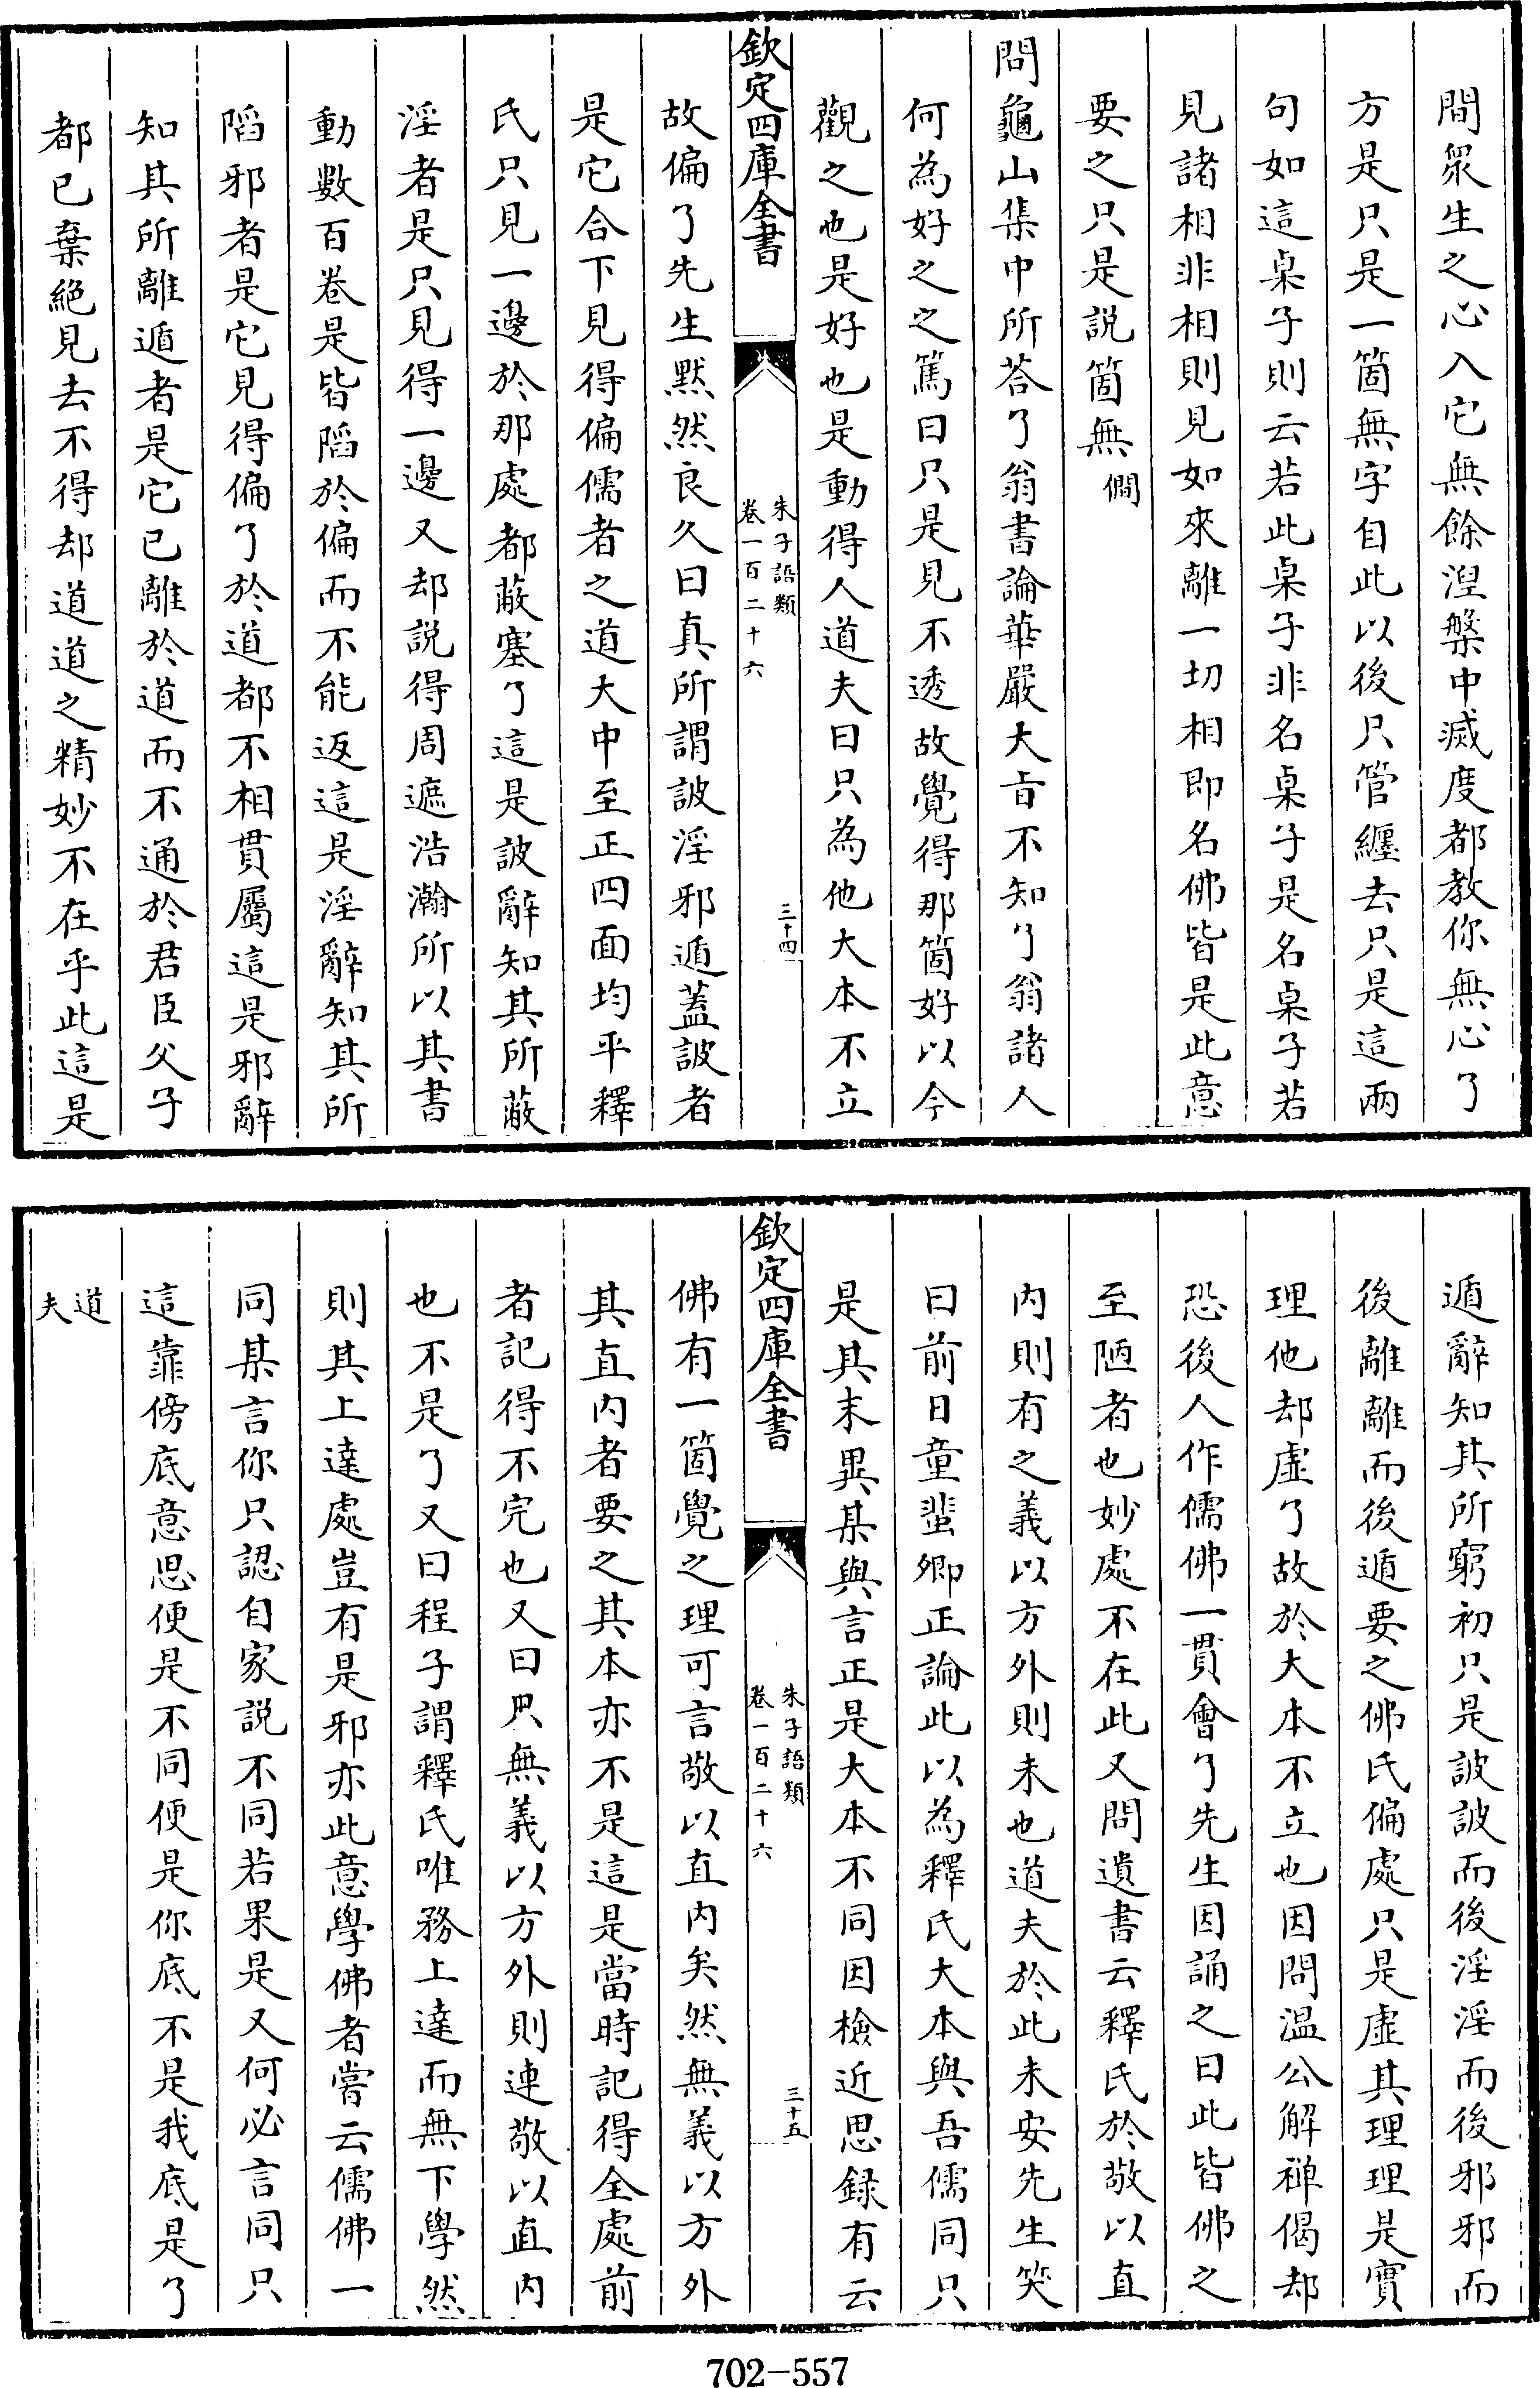 間衆生之心入它無餘湼槃中滅度都教你無心了
方是只是一箇無字自此以後只管纏去只是這兩
句如這桌子則云若此桌子非名桌子是名桌子若
見諸相非相則見如來離一切相即名佛皆是此意
要之只是説箇無僩
問龜山集中所荅了翁書論華嚴大旨不知了翁諸人
何為好之之篤曰只是見不透故覺得那箇好以今
觀之也是好也是動得人道夫曰只為他大本不立
欽定四庫全書
朱子語類
卷一百二十六
三十四
故偏了先生黙然良久曰真所謂詖淫邪遁蓋詖者
是它合下見得偏儒者之道大中至正四面均平釋
氏只見一邊於那處都蔽塞了這是詖辭知其所蔽
淫者是只見得一邊又却説得周遮浩瀚所以其書
動數百卷是皆䧟於偏而不能返這是淫辭知其所
䧟邪者是它見得偏了於道都不相貫屬這是邪辭
知其所離遁者是它已離於道而不通於君臣父子
都已棄絶見去不得却道道之精妙不在乎此這是
遁辭知其所窮初只是詖詖而後淫淫而後邪邪而
後離離而後遁要之佛氏偏處只是虛其理理是實
理他却虛了故於大本不立也因問温公解禅偈却
恐後人作儒佛一貫㑹了先生因誦之曰此皆佛之
至陋者也妙處不在此又問遺書云釋氏於敬以直
内則有之義以方外則未也道夫於此未安先生笑
曰前日童蜚卿正論此以為釋氏大本與吾儒同只
是其末異某與言正是大本不同因檢近思録有云
欽定四庫全書
朱子語類
卷一百二十六
三十五
佛有一箇覺之理可言敬以直内矣然無義以方外
其直内者要之其本亦不是這是當時記得全處前
者記得不完也又曰只無義以方外則連敬以直内
也不是了又曰程子謂釋氏唯務上達而無下學然
則其上達處豈有是邪亦此意學佛者嘗云儒佛一
同某言你只認自家説不同若果是又何必言同只
這靠傍底意思便是不同便是你底不是我底是了
道夫
702-557